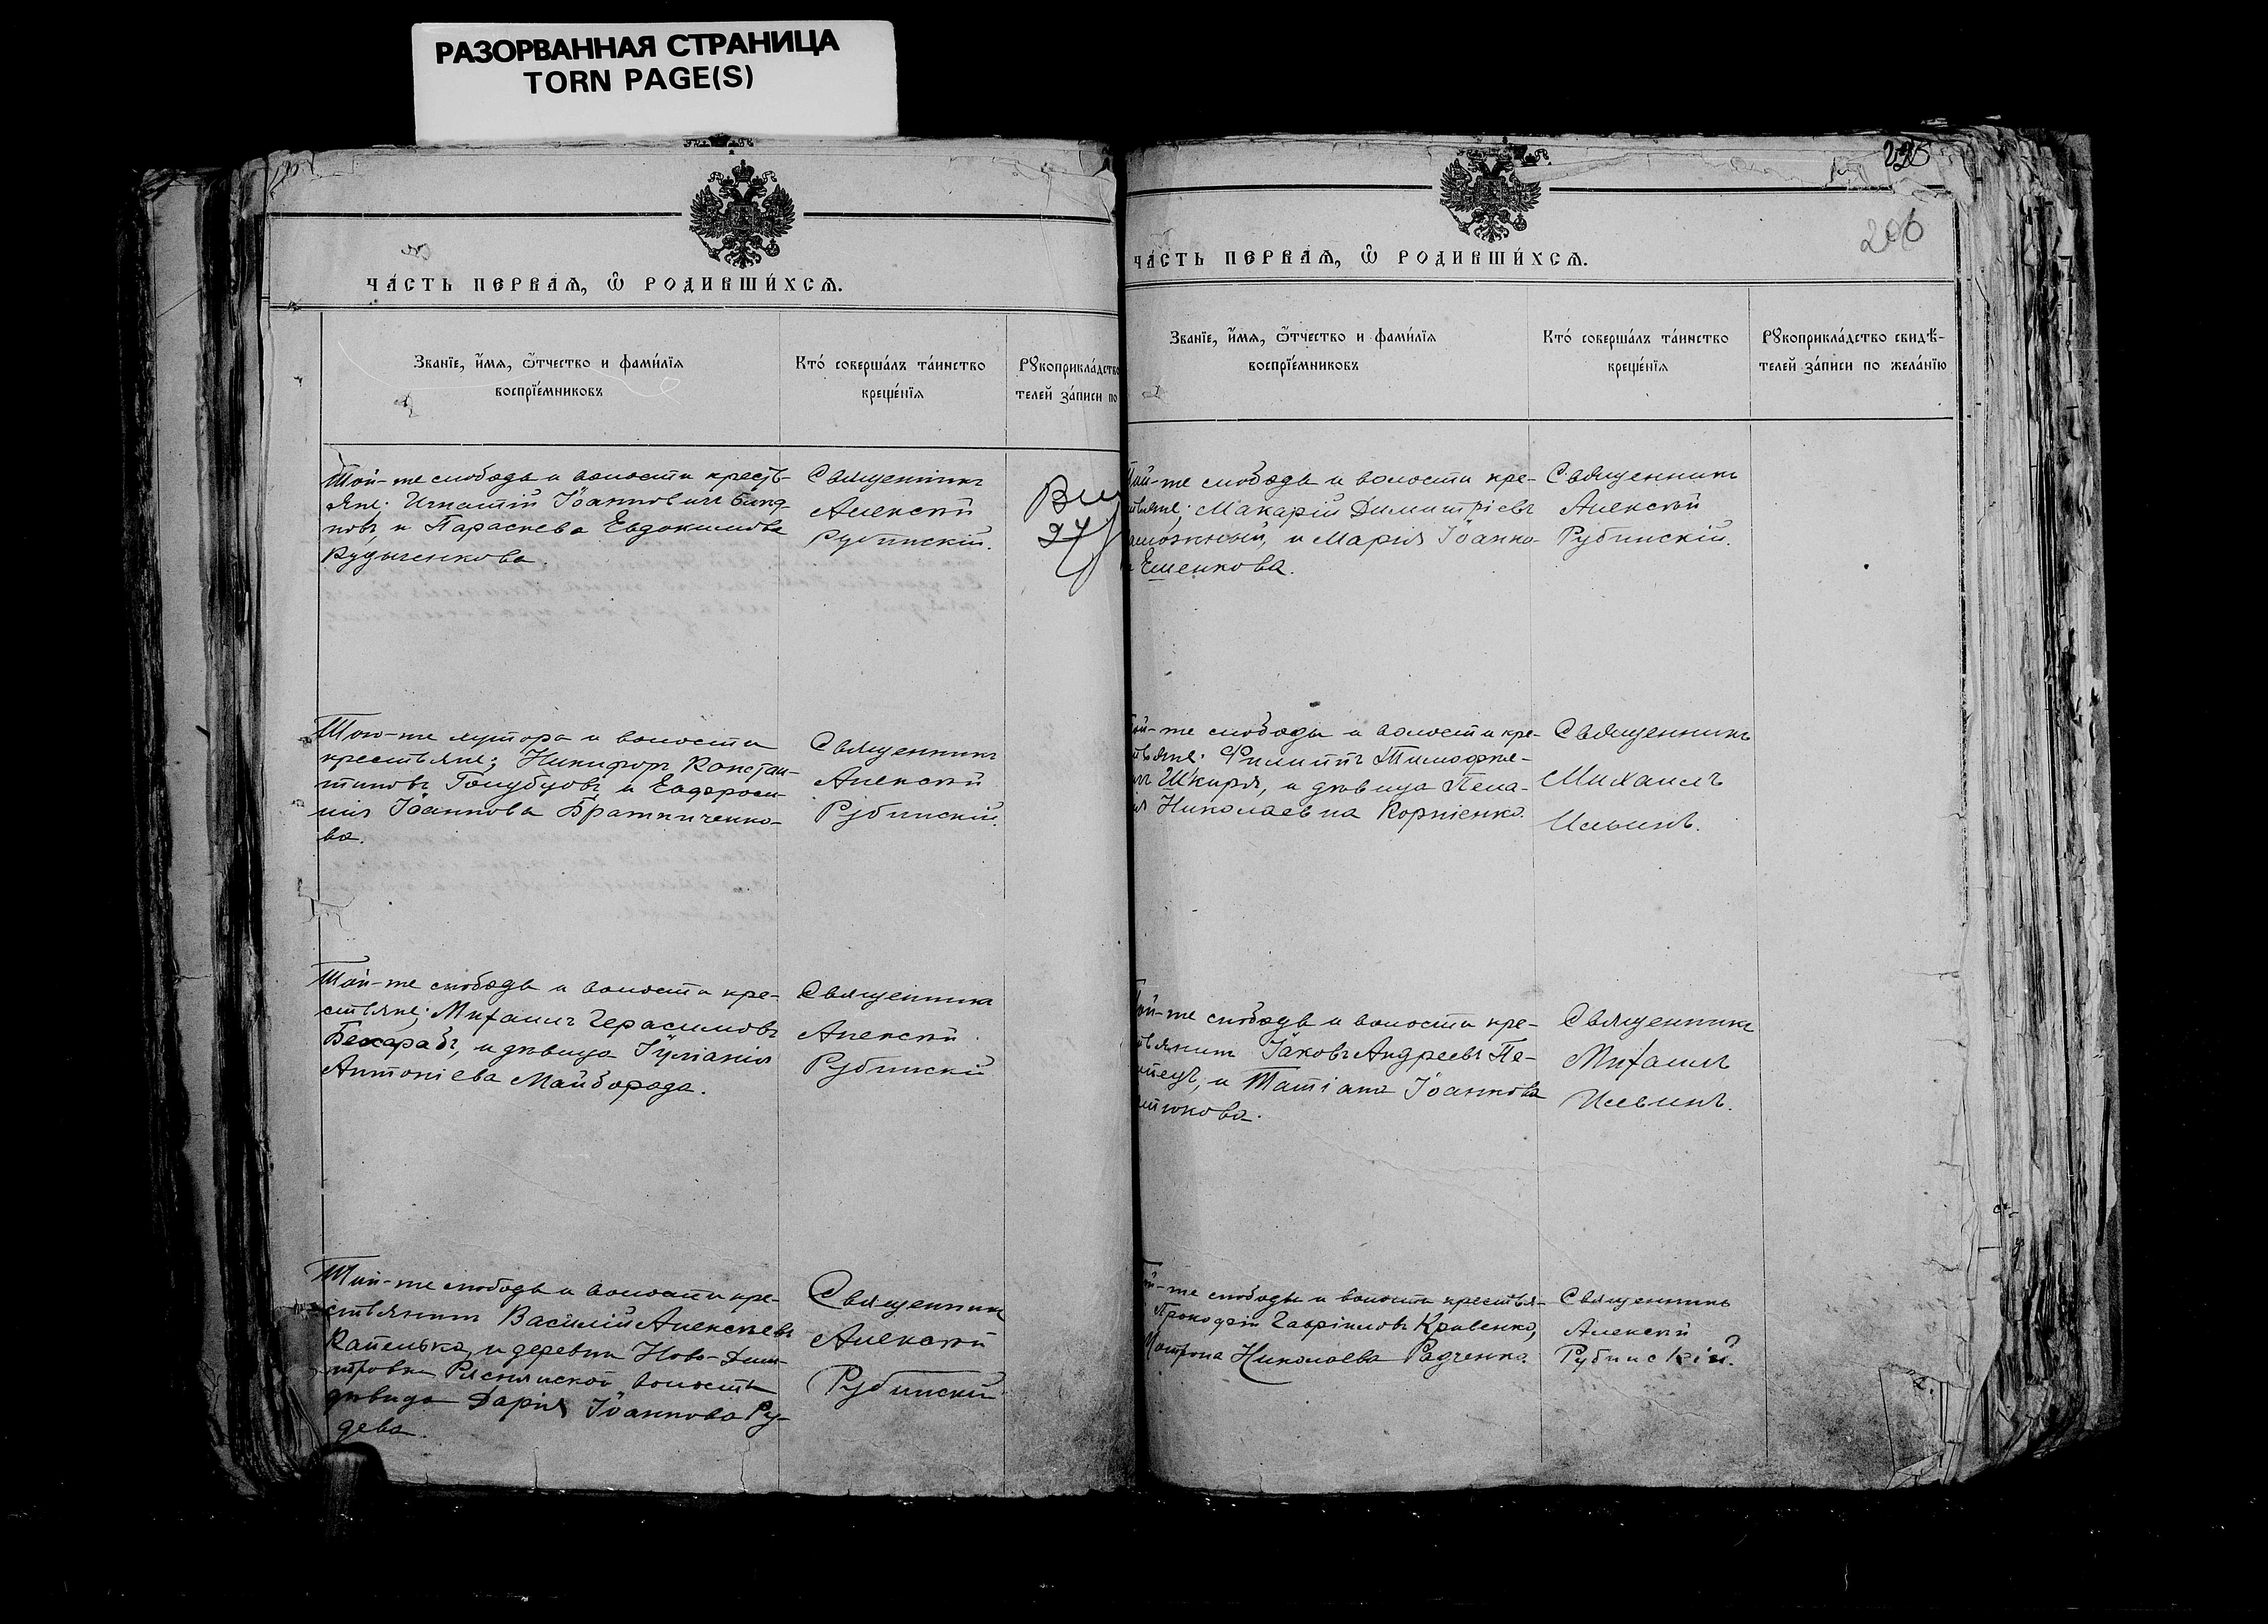 РАЗОРВАННАЯ СТРАНИЦА
TORN PAGE(S)
ЧА́СТЬ ПЕРВАѦ, Ѽ РОДИВШИ́ХСѦ.
Зва́нїе, и҆́мѧ, ѻ҆́тчество и фами́лїѧ
воспрїе́мниковъ
Кто̀ соверша́лъ та́инство
креще́нїѧ
Рꙋкоприкла́дство
телей за́писи по
Той-же слободы и волости кресть-
яне: Игнатій Іоанновичъ
новъ, и Параскева Евдокимова
Кудыченкова.
Священникъ
Алексѣй
Рубинскій.
Того-же хутора и волости
крестьяне: Никифоръ Констан-
тиновъ Голубцовъ, и Евфроси-
нія Іоаннова Братниченко-
ва.
Священникъ
Алексѣй
Рубинскій.
Той-же слободы и волости кре-
стьяне; Михаилъ Герасимовъ
Бехарабъ, и дѣвица Іуліанія
Антоніева Майборода.
Священникъ
Алексѣй
Рубинскій
Той-же слободы и волости кре-
стьянинъ Василій Алексѣевъ
Капелька, и деревни Ново-Дми-
тровки Ряснянской волости
дѣвица Дарія Іоаннова Ру-
дева.
Священникъ
Алексѣй
Рубинскій
226
206
ЧА́СТЬ ПЕРВАѦ, Ѽ РОДИВШИ́ХСѦ.
Зва́нїе, и҆́мѧ, ѻ҆́тчество и фами́лїѧ
воспрїе́мниковъ
Кто̀ соверша́лъ та́инство
креще́нїѧ
Рꙋкоприкла́дство свидѣ́-
телей за́писи по жела́нїю
той-же слободы и волости кре-
стьяне; Макарій Димитріевъ
и Марія Іоанно-
Еменкова.
Священникъ
Алексѣй
Рубинскій.
той-же слободы и волости кре-
стьяне: Филиппъ Тимофѣе-
въ Шкиря, и дѣвица Пела-
гія Николаевна Корніенко.
Священникъ
Михаилъ
Ильинъ.
той-же слободы и волости кре-
стьянинъ Іаковъ Андреевъ Пе-
и Татіана Іоаннова
тюкова.
Священникъ
Михаилъ
Ильинъ.
той-же слободы и волости крестья-
Прокофій Гавріиловъ Кривенко,
Матрона Николаева Радченко.
Священникъ
Алексѣй
Рубинскій.